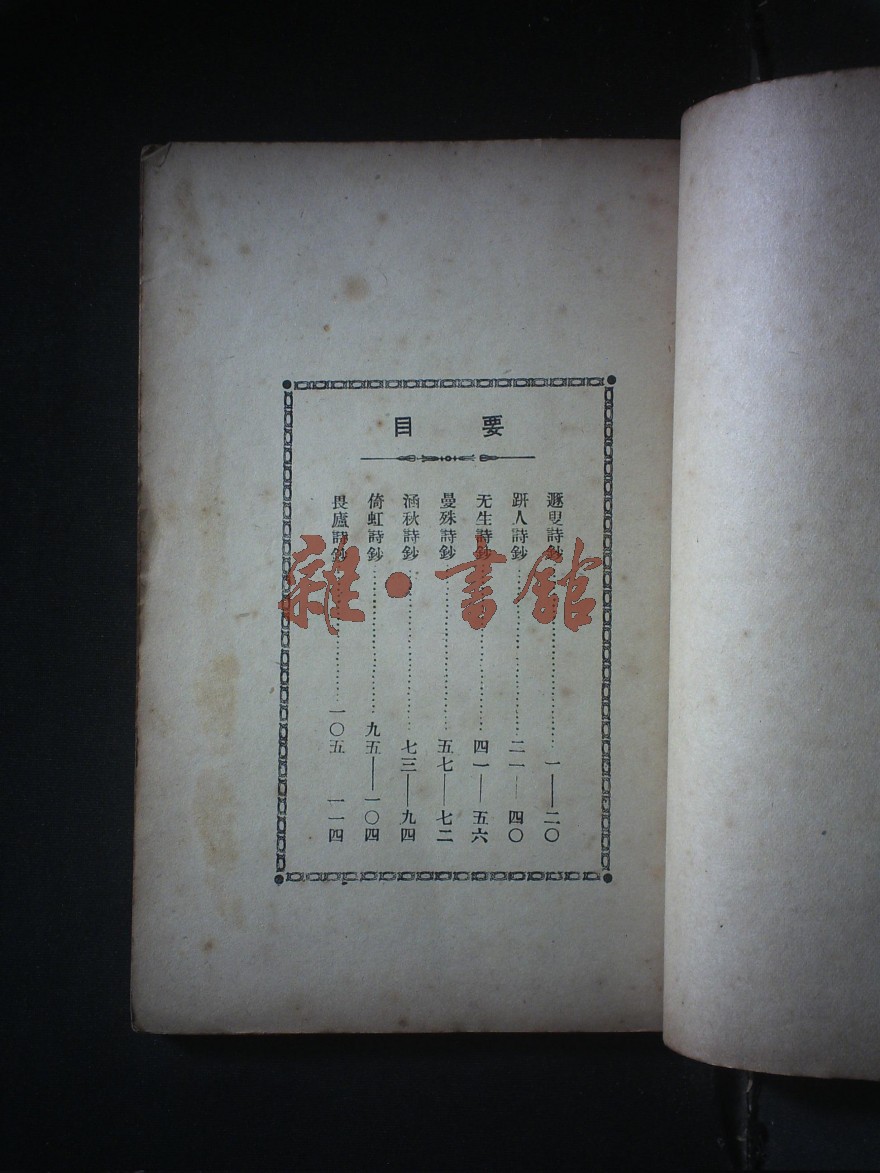 要目
遯叟詩鈔……一——二〇
趼人詩鈔……二一——四〇
无生詩鈔……四一——五六
曼殊詩鈔……五七——七二
涵秋詩鈔……七三——九四
倚虹詩鈔……九五——一〇四
畏廬詩鈔……一〇五 一一四
雜·書館